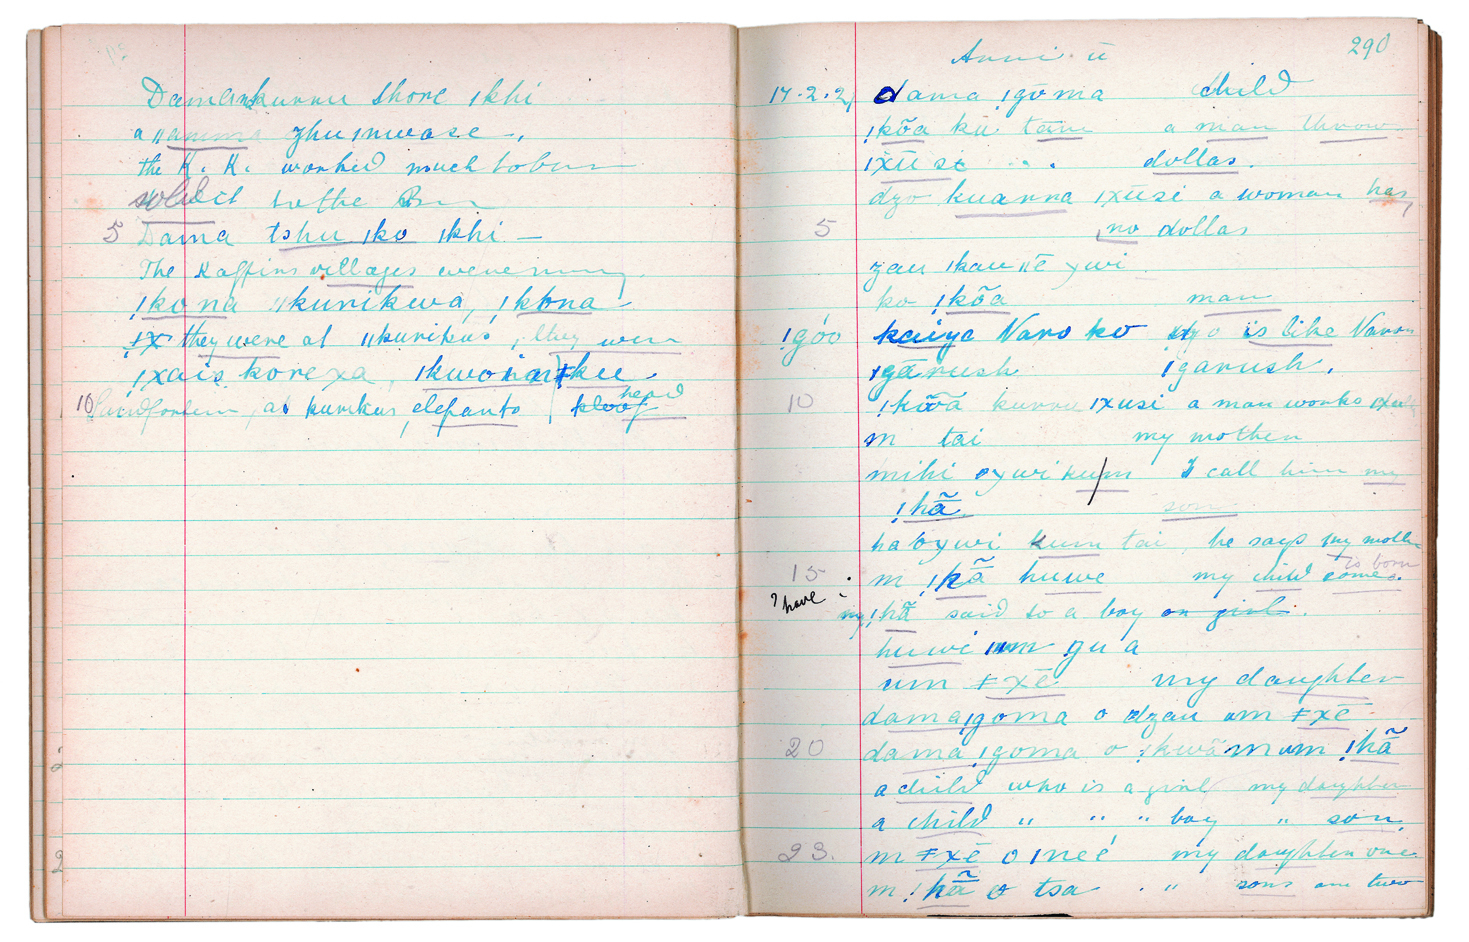 Damarkurru shore ǀkhi
a ǁamma zhuinwase,
the K. K. worked much
sold it to the
5 Dama tshu ǀko ǀkhi —
The Kaffirs villages were many
ǃkona ǁkurikwa, ǀkona
ǃx they were at ǁkurikus, they were
ǃxais korexa, ǂkee
10 at kurikus, elefanto head kloof
290
Anni ū
17.2.21 dama ǃgōma child
ǃkōa ku tām a man throws
ǀxūsi . . . dollas.
dzo kuanna ǀxūsi a woman has
5 no dollas
zau ǀkau ǁē ywi
ko ǃkōa man
ǃgóo kaiya Naro ko dzo is like Naron
ǀgārush ǀgarush.
10 ǃkōā kurru ǀxusi a man works ǀxusi
m tai my mother
mihi oywi kum I call him my
ǃhã. son
ha oywi kum tai he says my mother
15 m ǃhã huwe my child comes. is born
? have my ǃhã said to a boy or girl.
huwi mm gu a
um ǂxē my daughter
dama ǃgoma o dzau um ǂxē
20 dama ǃgoma o ǀkwãm um ǃhã
a child who is a girl my daughter
a child " " " boy " son.
23. m ǂxē o ǀneé my daughter one
m ǃhã o tsa . " sons are two